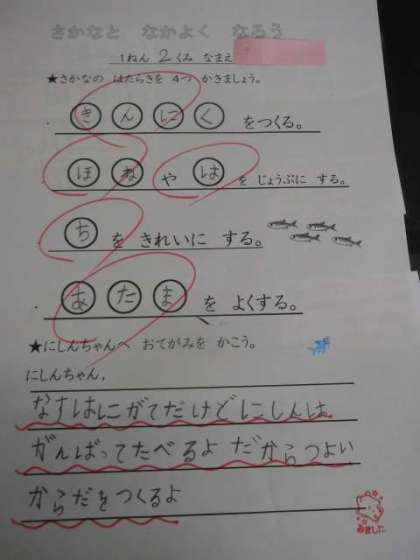 さかなと なかよく なろう
1ねん 2 くみ なまえ
★さかなの はたらきを 4つ かきましょう。
きんにく をつくる。
ほね や は を じょうぶに する。
ち を きれいに する。
あたま を よくする。
★にしんちゃんへ おてがみを かこう。
にしんちゃん,
なすはにがてだけどにしんは
がんばってたべるよ だからつよい
からだをつくるよ
みました